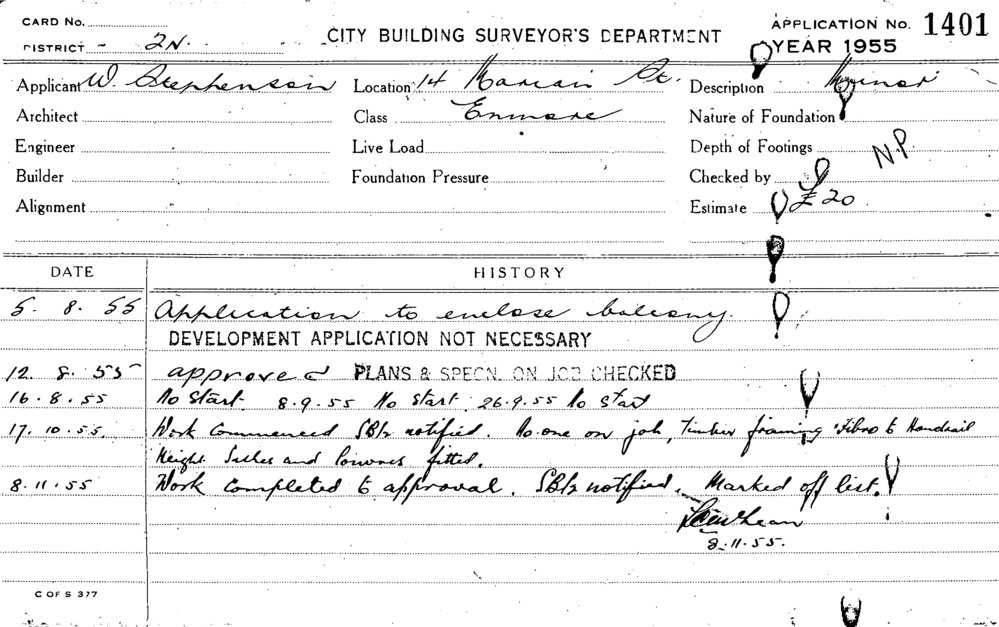 CARD No.
APPLICATION No. 1401
DISTRICT - 2N.
CITY BUILDING SURVEYOR'S DEPARTMENT
YEAR 1955
Applicant W. Stephenson Location 14 Marian St. Description Minor
Architect Class Enmore Nature of Foundation
Engineer Live Load Depth of Footings N.P.
Builder Foundation Pressure Checked by
Alignment Estimate £20
DATE HISTORY
5. 8. 55 Application to enclose balcony.
DEVELOPMENT APPLICATION NOT NECESSARY
12. 8. 55 approved PLANS & SPECN. ON JOB CHECKED
16.8.55 No start. 8.9.55 No start. 26.9.55 No start
17.10.55. Work Commenced notified. No one on job, Timber framing Fibro to Handrail
Height Sills and louvres fitted.
8.11.55 Work Completed to approval. notified. Marked off list.
8.11.55.
C OF S 377